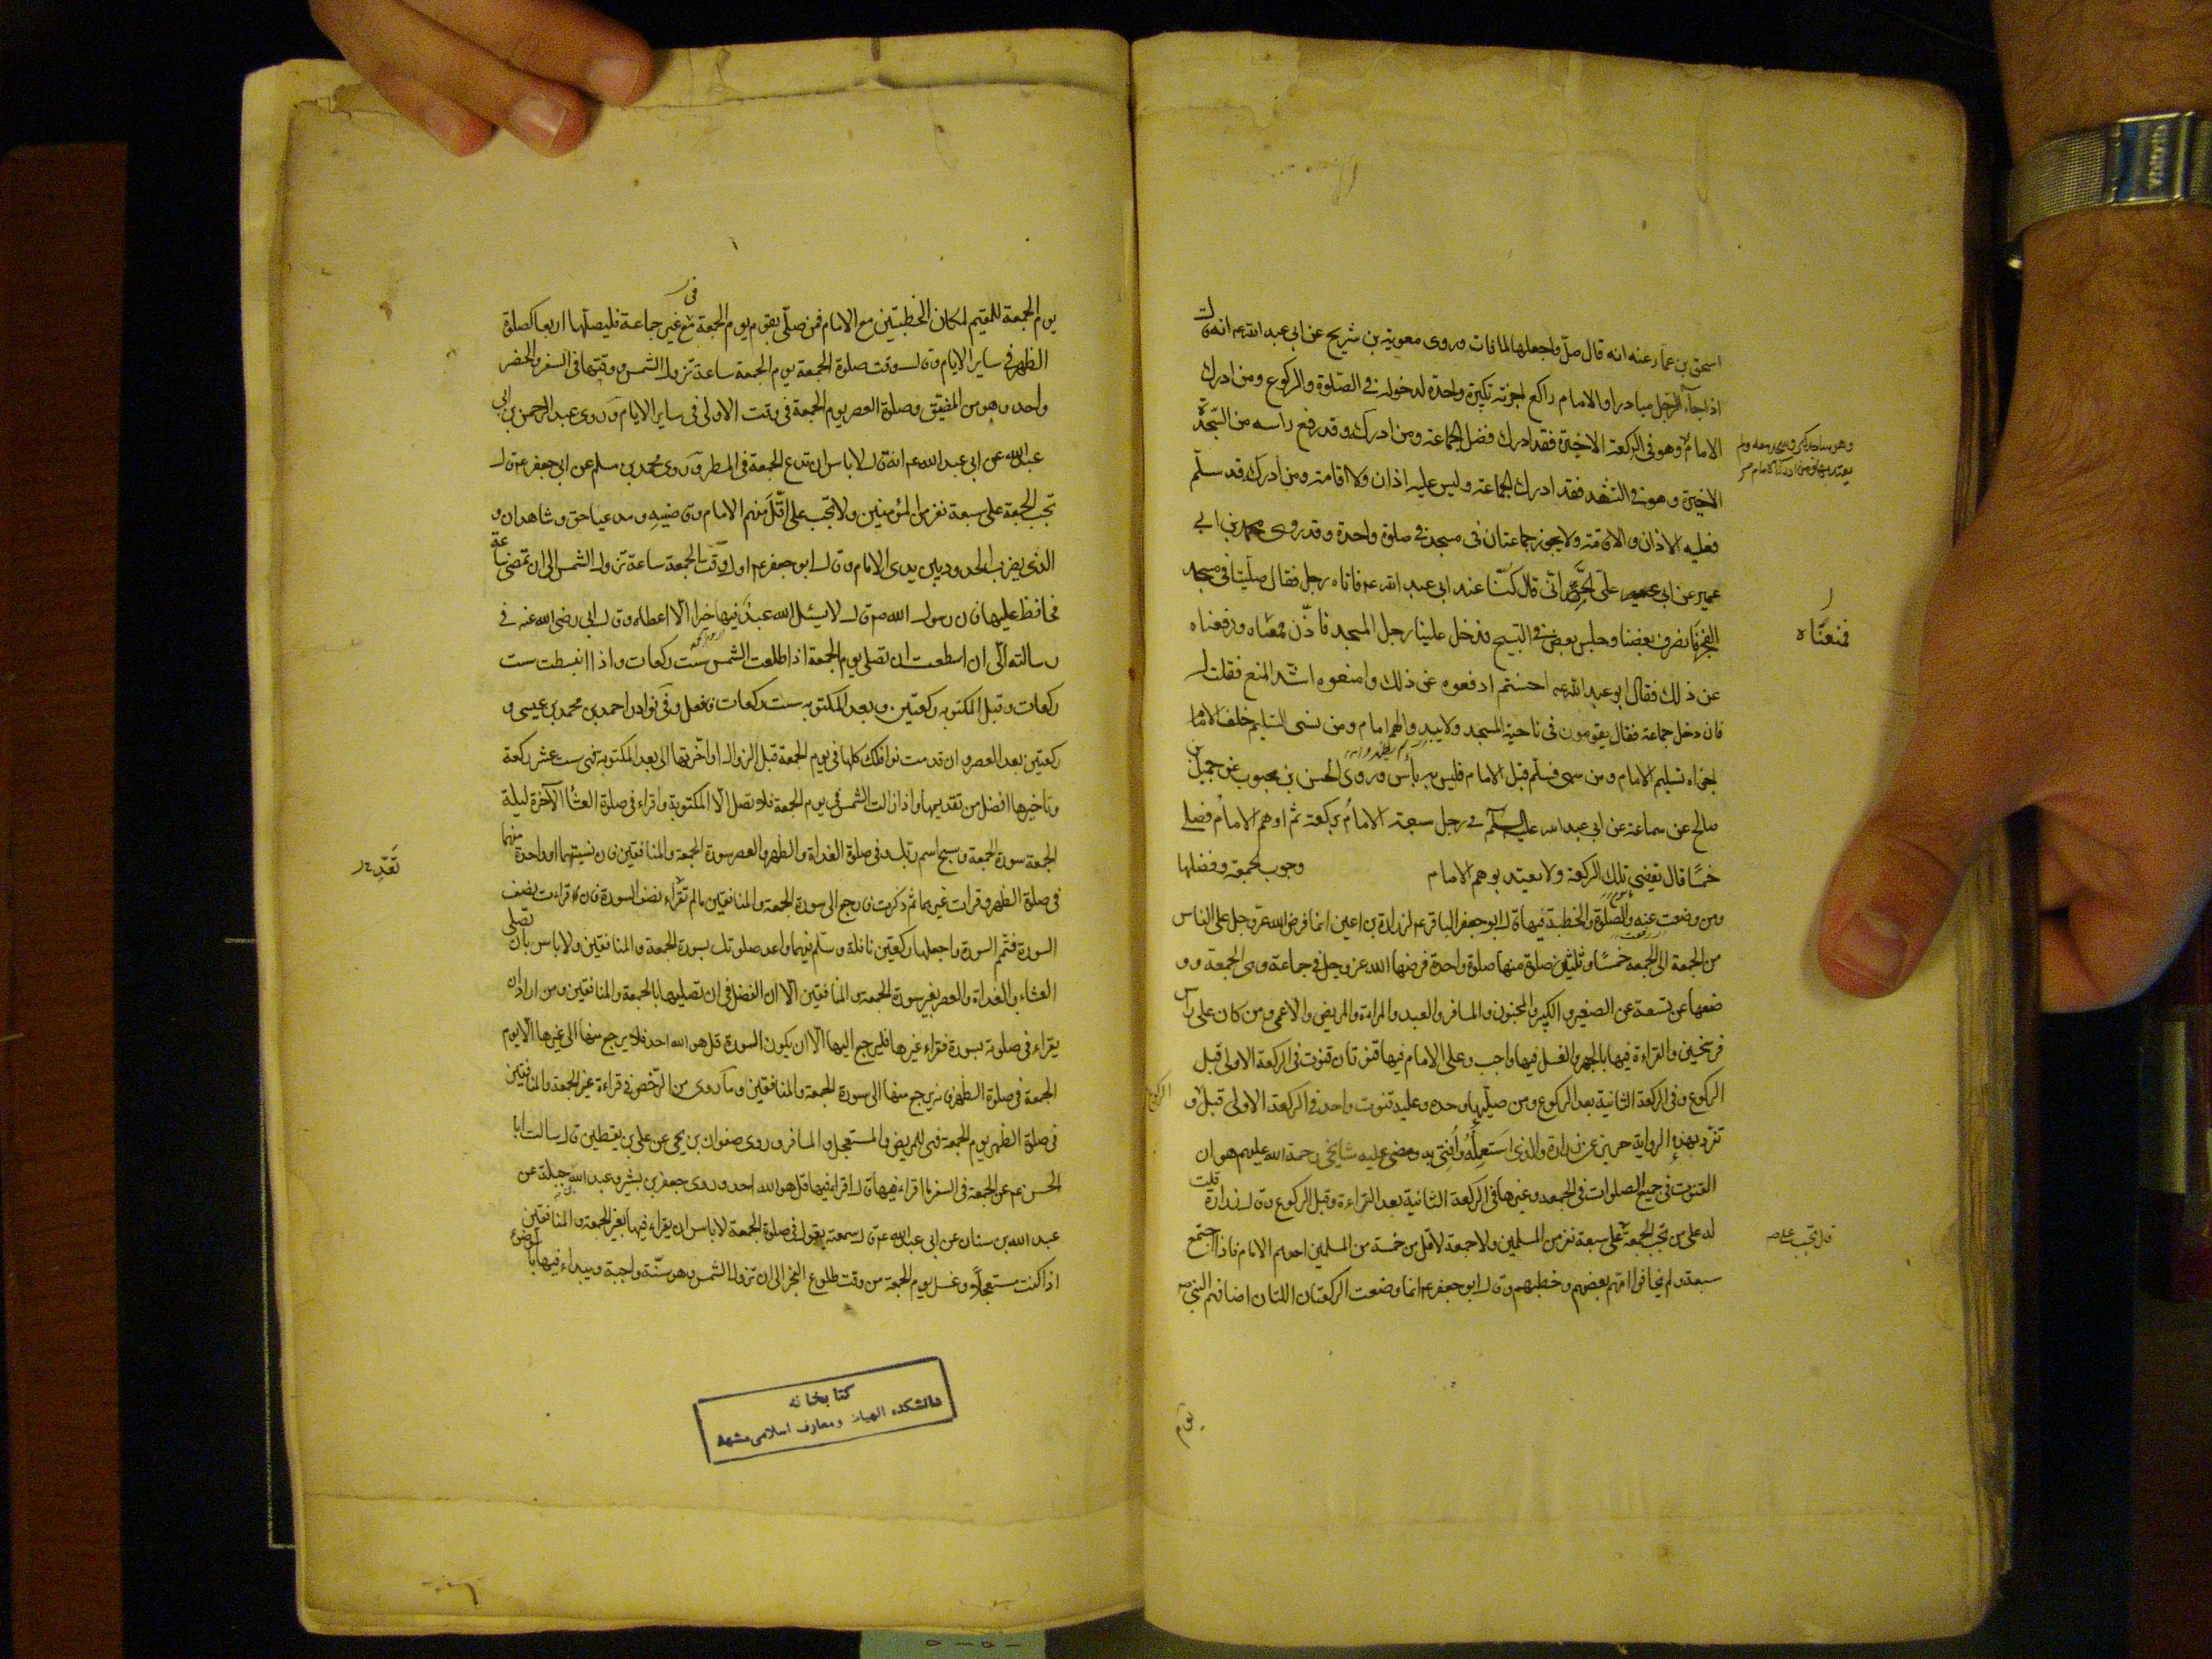 اسحق بن عمار عنه انه قال صلّ واجعلها لما فات وروى معوية بن شريح عن ابي عبد الله ع انه ق‍ال
اذا جاء الرجل مبادرا والامام راكع اجزته تكبيرة واحدة لدخوله في الصلوة والركوع ومن ادرك
الامام وهو في الركعة الاخيرة فقد ادرك فضل الجماعة ومن ادركه وقد رفع راسه من السجدة
الاخيرة وهو في التشهد فقد ادرك الجماعة وليس عليه اذان ولا اقامة ومن ادركه قد سلّم
فعليه الاذان والاقامة ولا يجوز جماعتان في مسجد في صلوة واحدة وقد روى محمد بن ابي
عمير عن ابي على الحرّاني قال كنّا عند ابي عبد الله ع فاتاه رجل فقال صلينا في مسجد
الفجر فانصرف بعضنا وجلس بعض في التسبيح فدخل علينا رجل المسجد فاذّن فمنعناه ودفعناه
فمنعناه
عن ذلك فقال ابو عبد الله ع احسنتم ادفعوه عن ذلك وامنعوه اشد المنع فقلت له
فان دخل جماعة فقال يقومون في ناحية المسجد ولا يبدو لهم امام ومن نسى التسليم خلف الامام
اجزاه تسليم الامام ومن سهى فسلّم قبل الامام فليس به بأس وروى الحسن بن محبوب عن جميل بن
صالح عن سماعة عن ابي عبد الله عليه السلام في رجل سبقه الامام بركعة ثم اوهم الامام فصلى
خمسًا قال يقضي تلك الركعة ولا يعتد بوهم الامام
وجوب الجمعة وفضلها
ومن وضعت عنه والصلوة والخطبة فيها ق‍ال ابو جعفر الباقر ع لزرارة بن اعين انما فرض الله عز وجل على الناس
من الجمعة الى الجمعة خمسًا وثلثين صلوة منها صلوة واحدة فرضها الله عز وجل في جماعة وهي الجمعة وو
ضعها عن تسعة عن الصغير والكبير والمجنون والمسافر والعبد والمراة والمريض والاعمى ومن كان على راس
فرسخين والقراءة فيها بالجهر والغسل فيها واجب وعلى الامام فيها قنوتان قنوت في الركعة الاولى قبل
الركوع وفي الركعة الثانية بعد الركوع ومن صلّيها وحده وعليه قنوت واحد في الركعة الاولى قبل الركوع و
تفرد بهذه الرواية حريز عن زرارة والذي استعمله وافتي به ومضى عليه مشايخي رحمة الله عليهم هو ان
القنوت في جميع الصلوات في الجمعة وغيرها في الركعة الثانية بعد القراءة وقبل الركوع وق‍ال زرارة قلت
له على من تجب الجمعة ق‍ال على سبعة نفر من المسلمين ولا جمعة لاقل من خمسة من المسلمين احدهم الامام فاذا اجتمع
سبعة ولم يخافوا امّهم بعضهم وخطبهم وق‍ال ابو جعفر ع انما وضعت الركعتان اللتان اضافهم النبي ص
يوم
يوم الجمعة للمقيم لمكان الخطبتين مع الامام فمن صلّى بقوم يوم الجمعة في غير جماعة فليصلّها اربعا كصلوة
الظهر في ساير الايام وق‍ال وقت صلوة الجمعة يوم الجمعة ساعة تزول الشمس ووقتها في السفر والحضر
واحد وهو من المضيّق وصلوة العصر يوم الجمعة في وقت الاولى في ساير الايام وروى عبد الرحمن بن ابي
عبد الله عن ابي عبد الله ع انه ق‍ال لا باس ان تدع الجمعة في المطر وروى محمد بن مسلم عن ابي جعفر ع ق‍ال
تجب الجمعة على سبعة نفر من المؤمنين ولا تجب على اقلّ منهم الامام وقاضيه ومدعيا حق وشاهدان و
الذي يضرب الحدود بين يدى الامام وق‍ال ابو جعفر ع اول وقت الجمعة ساعة تزول الشمس الى ان تمضي ساعة
فحافظ عليها فان رسول الله ص ق‍ال لا يسئل الله عبد فيها خيرا الّا اعطاه وق‍ال ابي رضي الله عنه في
رسالته الىّ ان اسطعت ان تصلي يوم الجمعة اذا طلعت الشمس ستّ ركعات واذا انبسطت ست
ركعات وقبل المكتوبه ركعتين وبعد المكتوبه ست ركعات فافعل وفي نوادر احمد بن محمد بن عيسى و
ركعتين بعد العصر وان قدمت نوافلك كلها في يوم الجمعة قبل الزوال او اخّرتها الى بعد المكتوبة فهي ست عشر ركعة
وتاخيرها افضل من تقديمها واذا زالت الشمس في يوم الجمعة فلا تصل الّا المكتوبة واقراء في صلوة العشاء الآخرة ليلة
الجمعة سورة الجمعة وسبح اسم ربك وفي صلوة الغداة والظهر والعصر سورة الجمعة والمنافقين فان نسيتهما او واحدة منهما
في صلوة الظهر وقرات غيرهما ثم ذكرت فارجع الى سورة الجمعة والمنافقين ما لم تقراء نصف السورة فان قراءت نصف
السورة فتمّم السورة واجعلها ركعتين نافلة وسلّم فيهما واعد صلوتك بسورة الجمعة والمنافقين ولا باس بان تصلي
العشاء والغداة والعصر بغير سورة الجمعة والمنافقين الّا ان الفضل في ان تصليها بالجمعة والمنافقين ومن اراد ان
يقراء في صلوته بسورة فقراء غيرها فليرجع اليها الّا ان يكون السورة قل هو الله احد فلا يرجع منها الى غيرها الا يوم
الجمعة في صلوة الظهر فانه يرجع منها الى سورة الجمعة والمنافقين وما روى من الرّخص في قراءة غير الجمعة والمنافقين
في صلوة الظهر يوم الجمعة فهى للمريض والمستعجل والمسافر وروى صفوان بن يحيى عن على بن يقطين ق‍ال سالت ابا
الحسن ع عن الجمعة في السفر ما اقراء فيها ق‍ال اقراء فيها قل هو الله احد وروى جعفر بن بشير وعبد الله جبلة عن
عبد الله بن سنان عن ابي عبد الله ع ق‍ال سمعته يقول في صلوة الجمعة لا باس ان يقراء فيها بغير الجمعة والمنافقين
اذا كنت مستعجلًا وغسل يوم الجمعة من وقت طلوع الفجر الى ان تزول الشمس وهو سنّة واجبة ويبداء فيها بالوضوء
كتابخانه
دانشكده الهيات ومعارف اسلامى مشهد